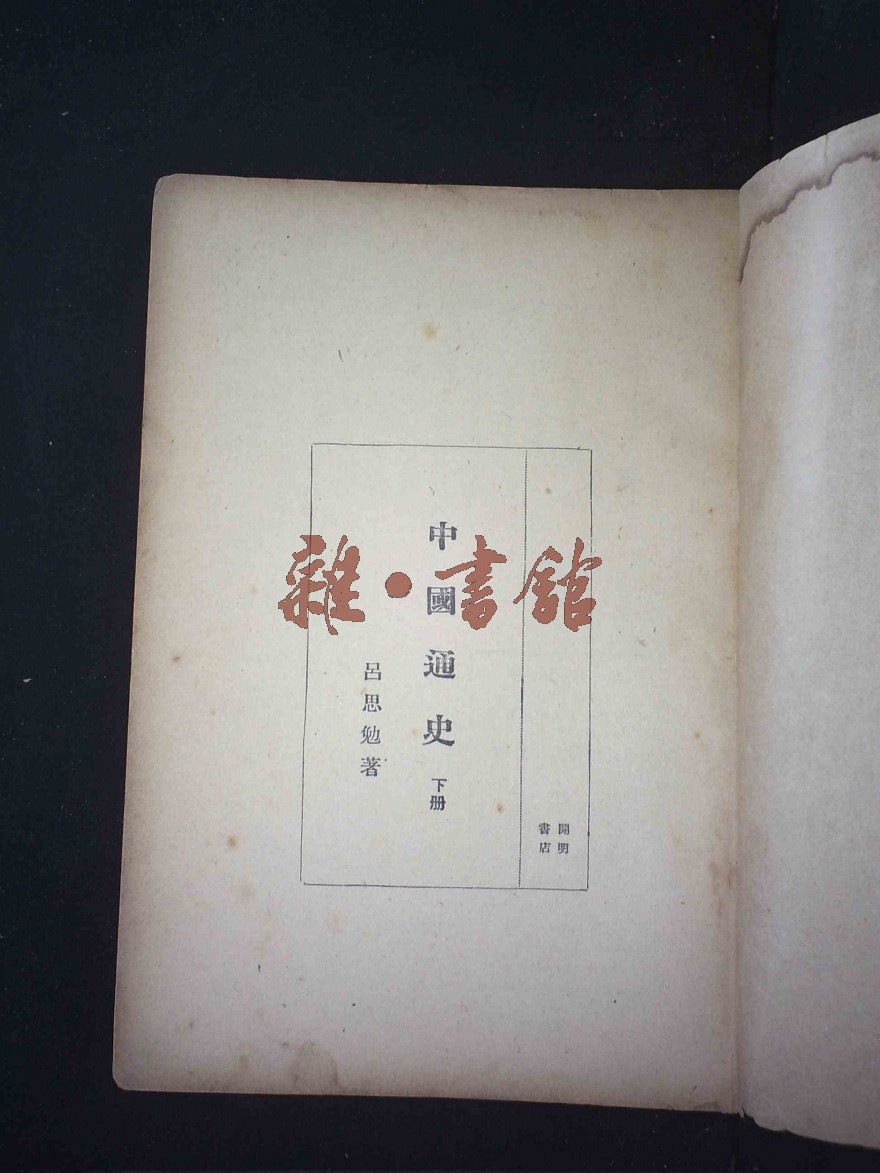 開明
書店
中國通史 下册
呂思勉著
雜·書館